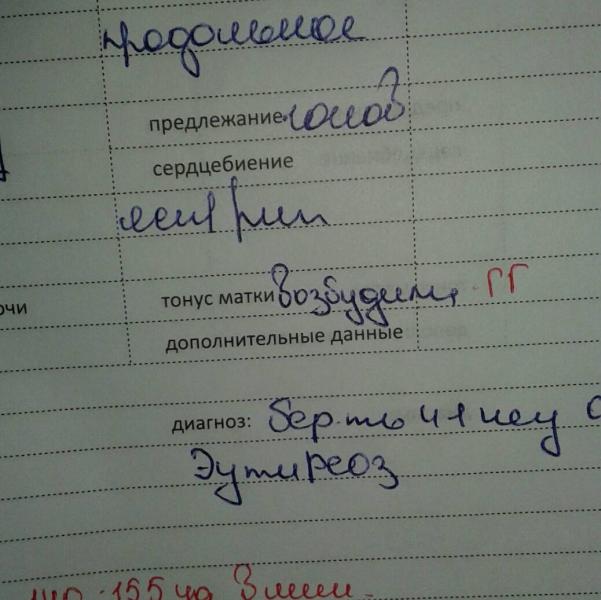 продольное
предлежание голов
сердцебиение
ясн ритм
очи
тонус матки возбудим, ГГ
дополнительные данные
диагноз: бер-ть 41 нед
Эутиреоз
155 уд